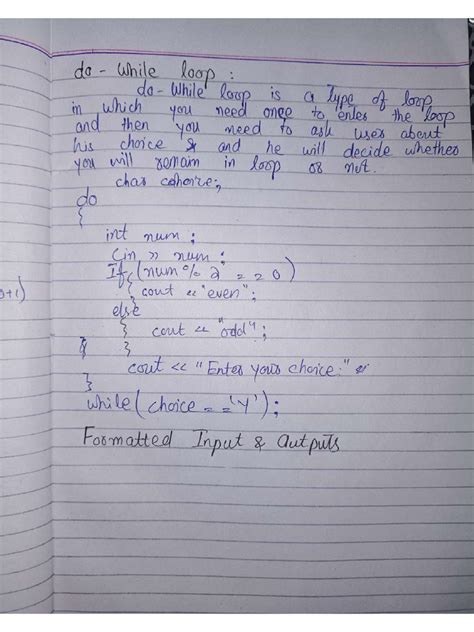 do - While loop :
do - While loop is a Type of loop
in which you need once to enter the loop
and then you need to ask user about
his choice & and he will decide whether
you will remain in loop or not.
char cohoire;
do
{
int num ;
Cin >> num ;
If (num % 2 = = 0)
{ cout << "even";
else
{ cout << "odd";
} }
cout << "Enter your choice:"
}
while (choice = = 'Y');
Formatted Input & Outputs
0+1)